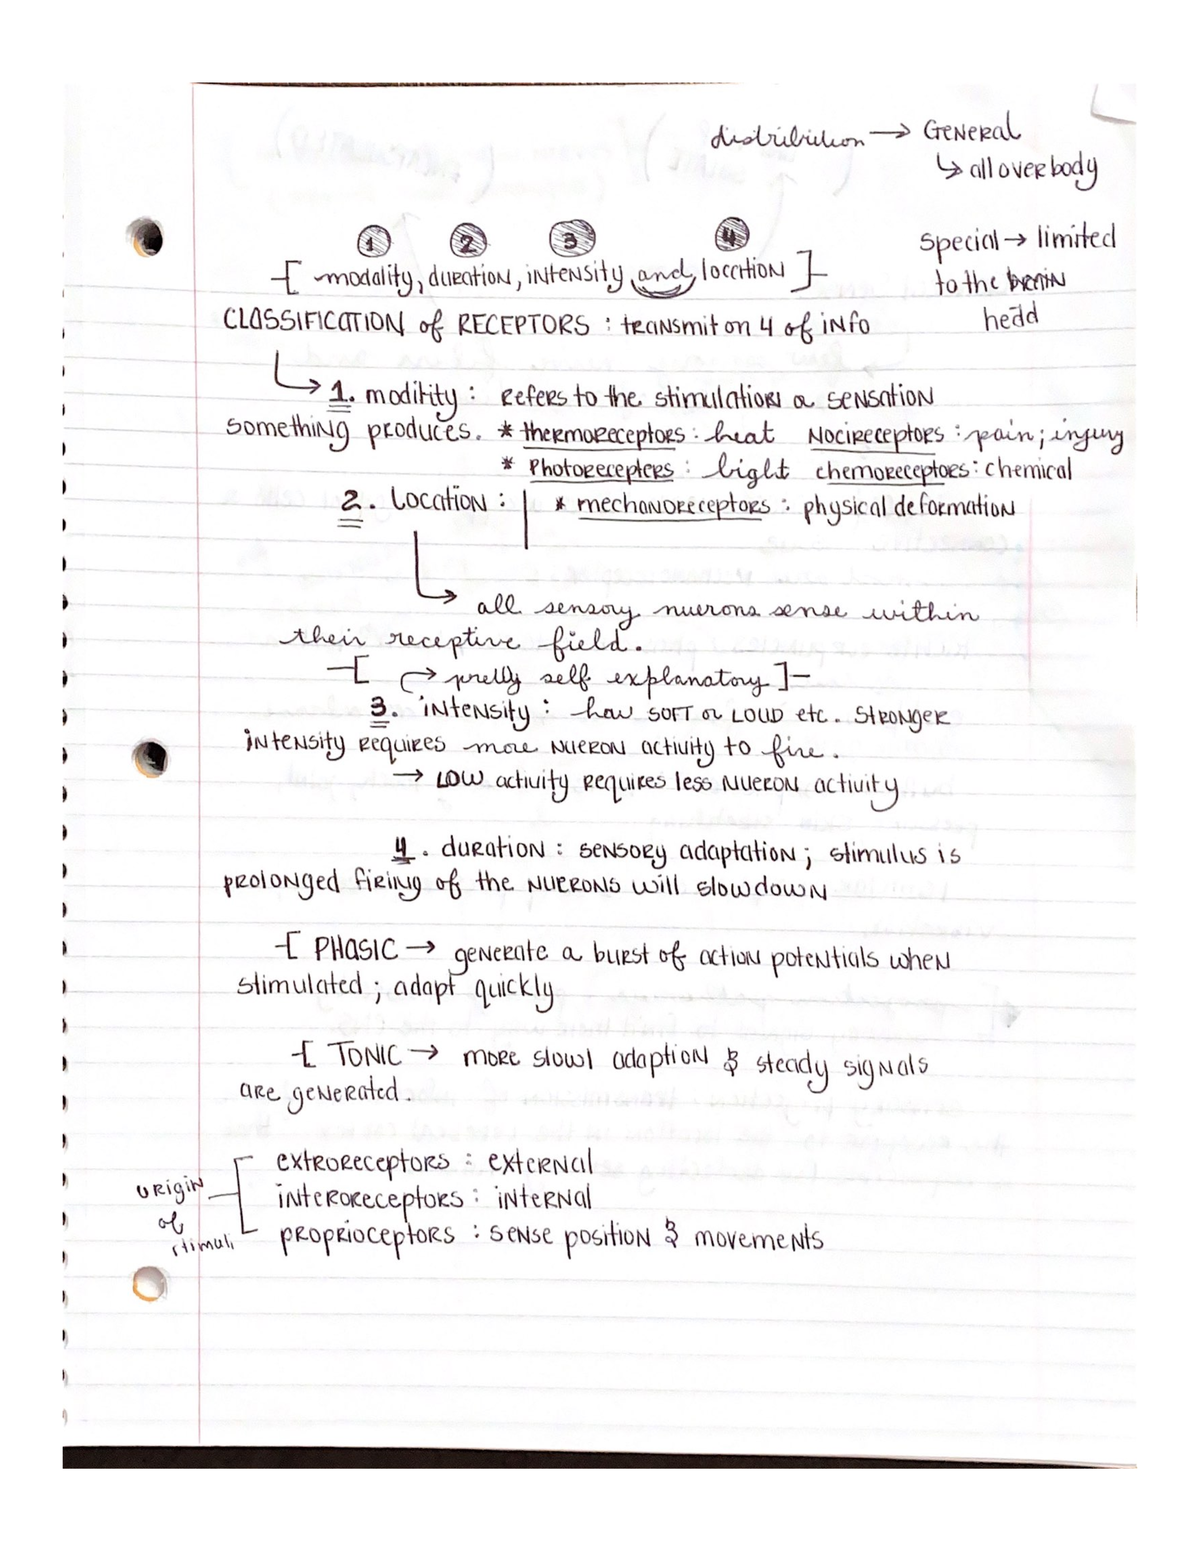 distribution → GENERAL
↳ all over body
1 2 3 4
-[ modality, duration, intensity and, location ]-
special → limited
to the brain
head
CLASSIFICATION of RECEPTORS : transmit on 4 of info
↳ 1. moditity : Refers to the stimulation a sensation
something produces. * thermoreceptors : heat Nocireceptors : pain ; injury
* Photorecepters : light chemoreceptors : chemical
2. Location : * mechanoreceptors : physical deformation
↳ all sensory nuerons sense within
their receptive field.
-[ → pretty self explanatory ]-
3. intensity : how SOFT or LOUD etc. Stronger
intensity requires more nueron activity to fire.
→ Low activity requires less nueron activity
4. duration : sensory adaptation ; stimulus is
prolonged firing of the nuerons will slow down
-[ PHASIC → generate a burst of action potentials when
stimulated ; adapt quickly
-[ TONIC → more slowl adaption & steady signals
are generated.
origin
of
stimuli
extroreceptors : external
interoreceptors : internal
proprioceptors : sense position & movements